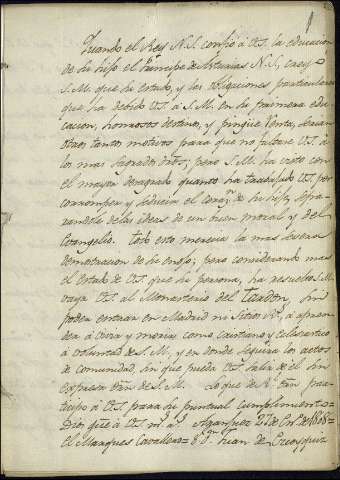 1
Quando el Rey N.S. confió á V.S. la educacion
de su hijo el Principe de Asturias N.S., creyó
S.M. que su estado, y las obligaciones particulares
que ha debido V.S. á S.M. en su primera edu-
cacion, honrosos destinos, y pingüe renta, serian
otros tantos motivos para que no faltase V.S. á
los mas sagrados dros; pero S.M. ha visto con
el mayor desagrado quanto ha trabajado V.S. por
corromper y seducir el coraz.n de su hijo, sepa-
randole de las ideas de un buen moral y del
Evangelio. Todo esto merecia la mas severa
demostracion de su enojo; pero considerando mas
el Estado de V.S. que su persona, ha resuelto S.M.
vaya V.S. al Monasterio del Tardon, sin
poder entrar en Madrid ni Sitios R.s, á apren-
der á vivir y morir como cristiano y eclesiastico
á voluntad de S.M., y en donde seguirá los actos
de comunidad, sin que pueda V.S. salir de el sin
expresa orn de S.M. Lo que de R.l orn par-
ticipo á V.S. para su puntual cumplimiento=
Dios gue á V.S. m.s a.s Aranjuez 27 de En.o de 1808=
El Marques Caballero= S.r D.n Juan de Escoiquiz